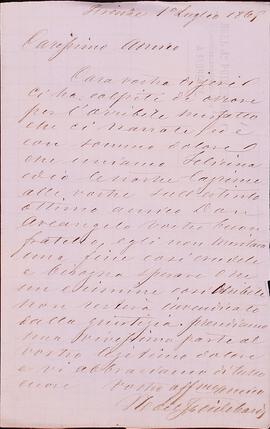 Firenze 1° Luglio 186
Carissimo Amico
Cara vostra
ci ha colpiti di orrore
per l'orribile misfatto
che ci narrate ed è
con sommo dolore
che uniamo
ed io le nostre lagrime
alle vostre sul distinto
ottimo amico Don
Arcangelo vostro buon
fratello, egli non meritava
una fine così crudele
e bisogna sperare che
un crimine così
non resterà invendicato
dalla giustizia prendiamo
una vivissima parte al
vostro legittimo dolore
e vi abbracciamo di tutto
cuore vostro aff amico